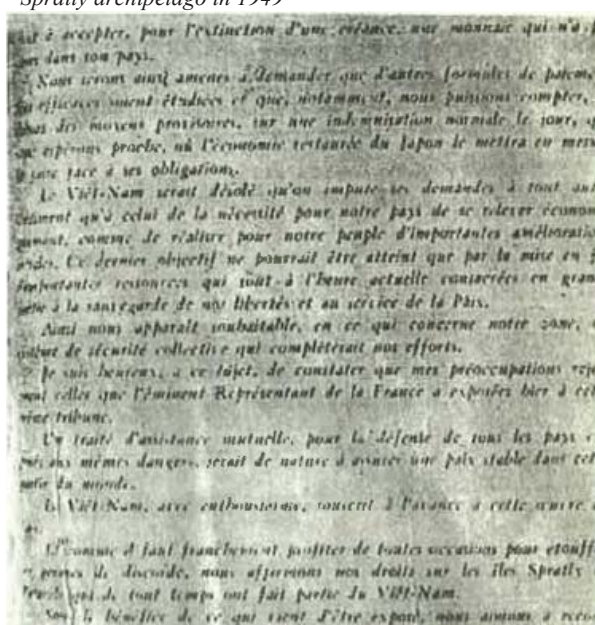 Spratly archipelago in 1949
à accepter, pour l'extinction d'une créance, une monnaie qui n'a
dans son pays.
Nous serons ainsi amenés à demander que d'autres formules de
efficaces soient étudiées et que, notamment, nous puissions compter,
des moyens provisoires, sur une indemnisation normale le jour,
espérons proche, où l'économie restaurée du Japon le mettra en
face à ses obligations.
Le Viêt-Nam serait désolé qu'on impute ses demandes à tout
qu'à celui de la nécessité pour notre pays de se relever
comme de réaliser pour notre peuple d'importantes
Ce dernier objectif ne pourrait être atteint que par la mise en
importantes ressources qui sont à l'heure actuelle consacrées en
à la sauvegarde de nos libertés et au service de la Paix.
Ainsi nous apparaît souhaitable, en ce qui concerne notre zone,
de sécurité collective qui compléterait nos efforts.
Je suis heureux, à ce sujet, de constater que mes préoccupations
celles que l'éminent Représentant de la France a exposées hier à
tribune.
Un traité d'assistance mutuelle, pour la défense de tous les pays
aux mêmes dangers, serait de nature à assurer une paix stable dans
du monde.
Le Viêt-Nam, avec enthousiasme, souscrit à l'avance à cette œuvre
comme il faut franchement profiter de toutes occasions pour
germes de discorde, nous affirmons nos droits sur les îles Spratly
qui de tout temps ont fait partie du Viêt-Nam.
le bénéfice de ce qui vient d'être exposé, nous aimons à